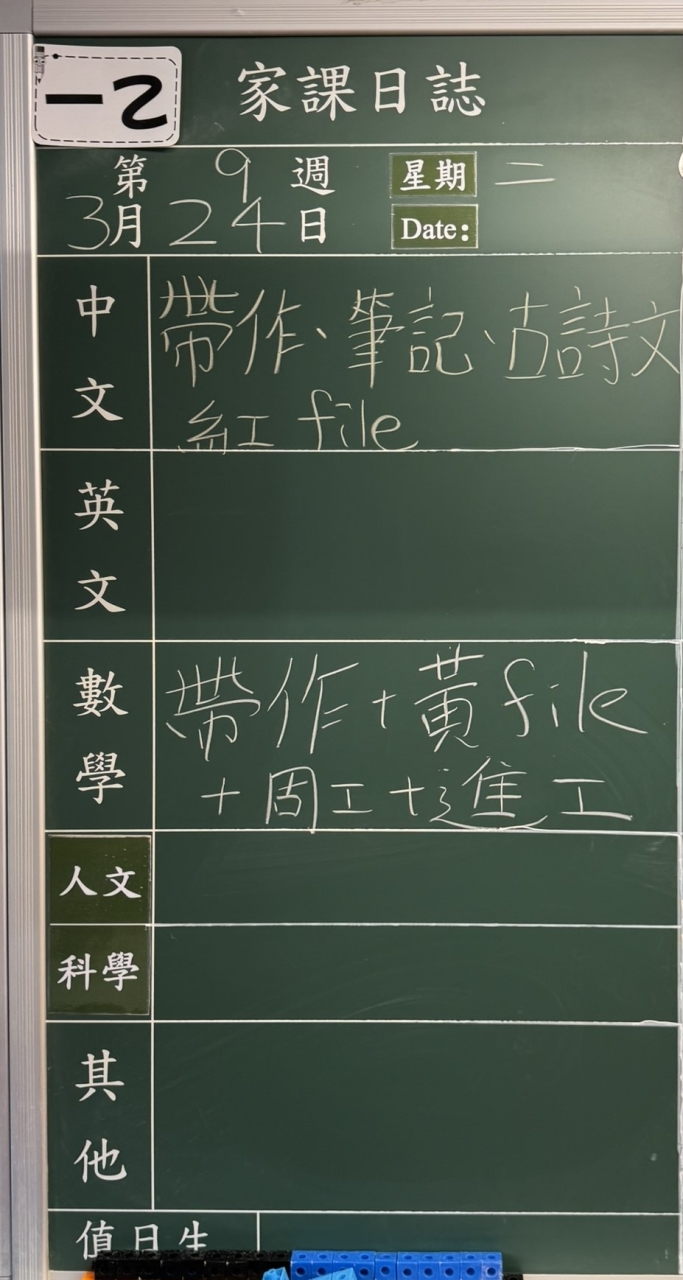 一2
家課日誌
第9週 星期二
3月24日 Date:
中文 帶作、筆記、古詩文
紅 file
英文
數學 帶作+黃file
+周工+進工
人文
科學
其他
值日生